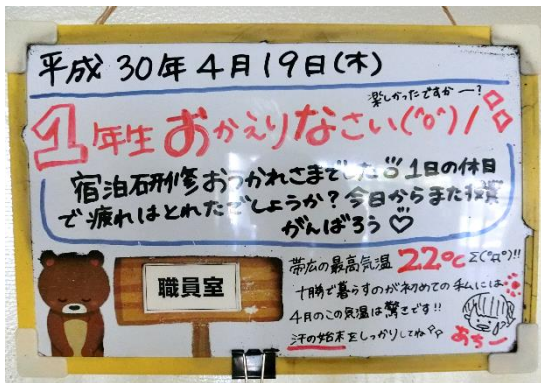 平成30年4月19日(木)
楽しかったですかー?
1年生おかえりなさい(^o^)/
宿泊研修おつかれさまでした 1日の休日
で疲れはとれたでしょうか?今日からまた授業
がんばろう♡
職員室
帯広の最高気温 22℃ Σ(°Д°)!!
十勝で暮らすのが初めての私には
4月のこの気温は驚きです!!
汗の始末をしっかりしてね
あちー